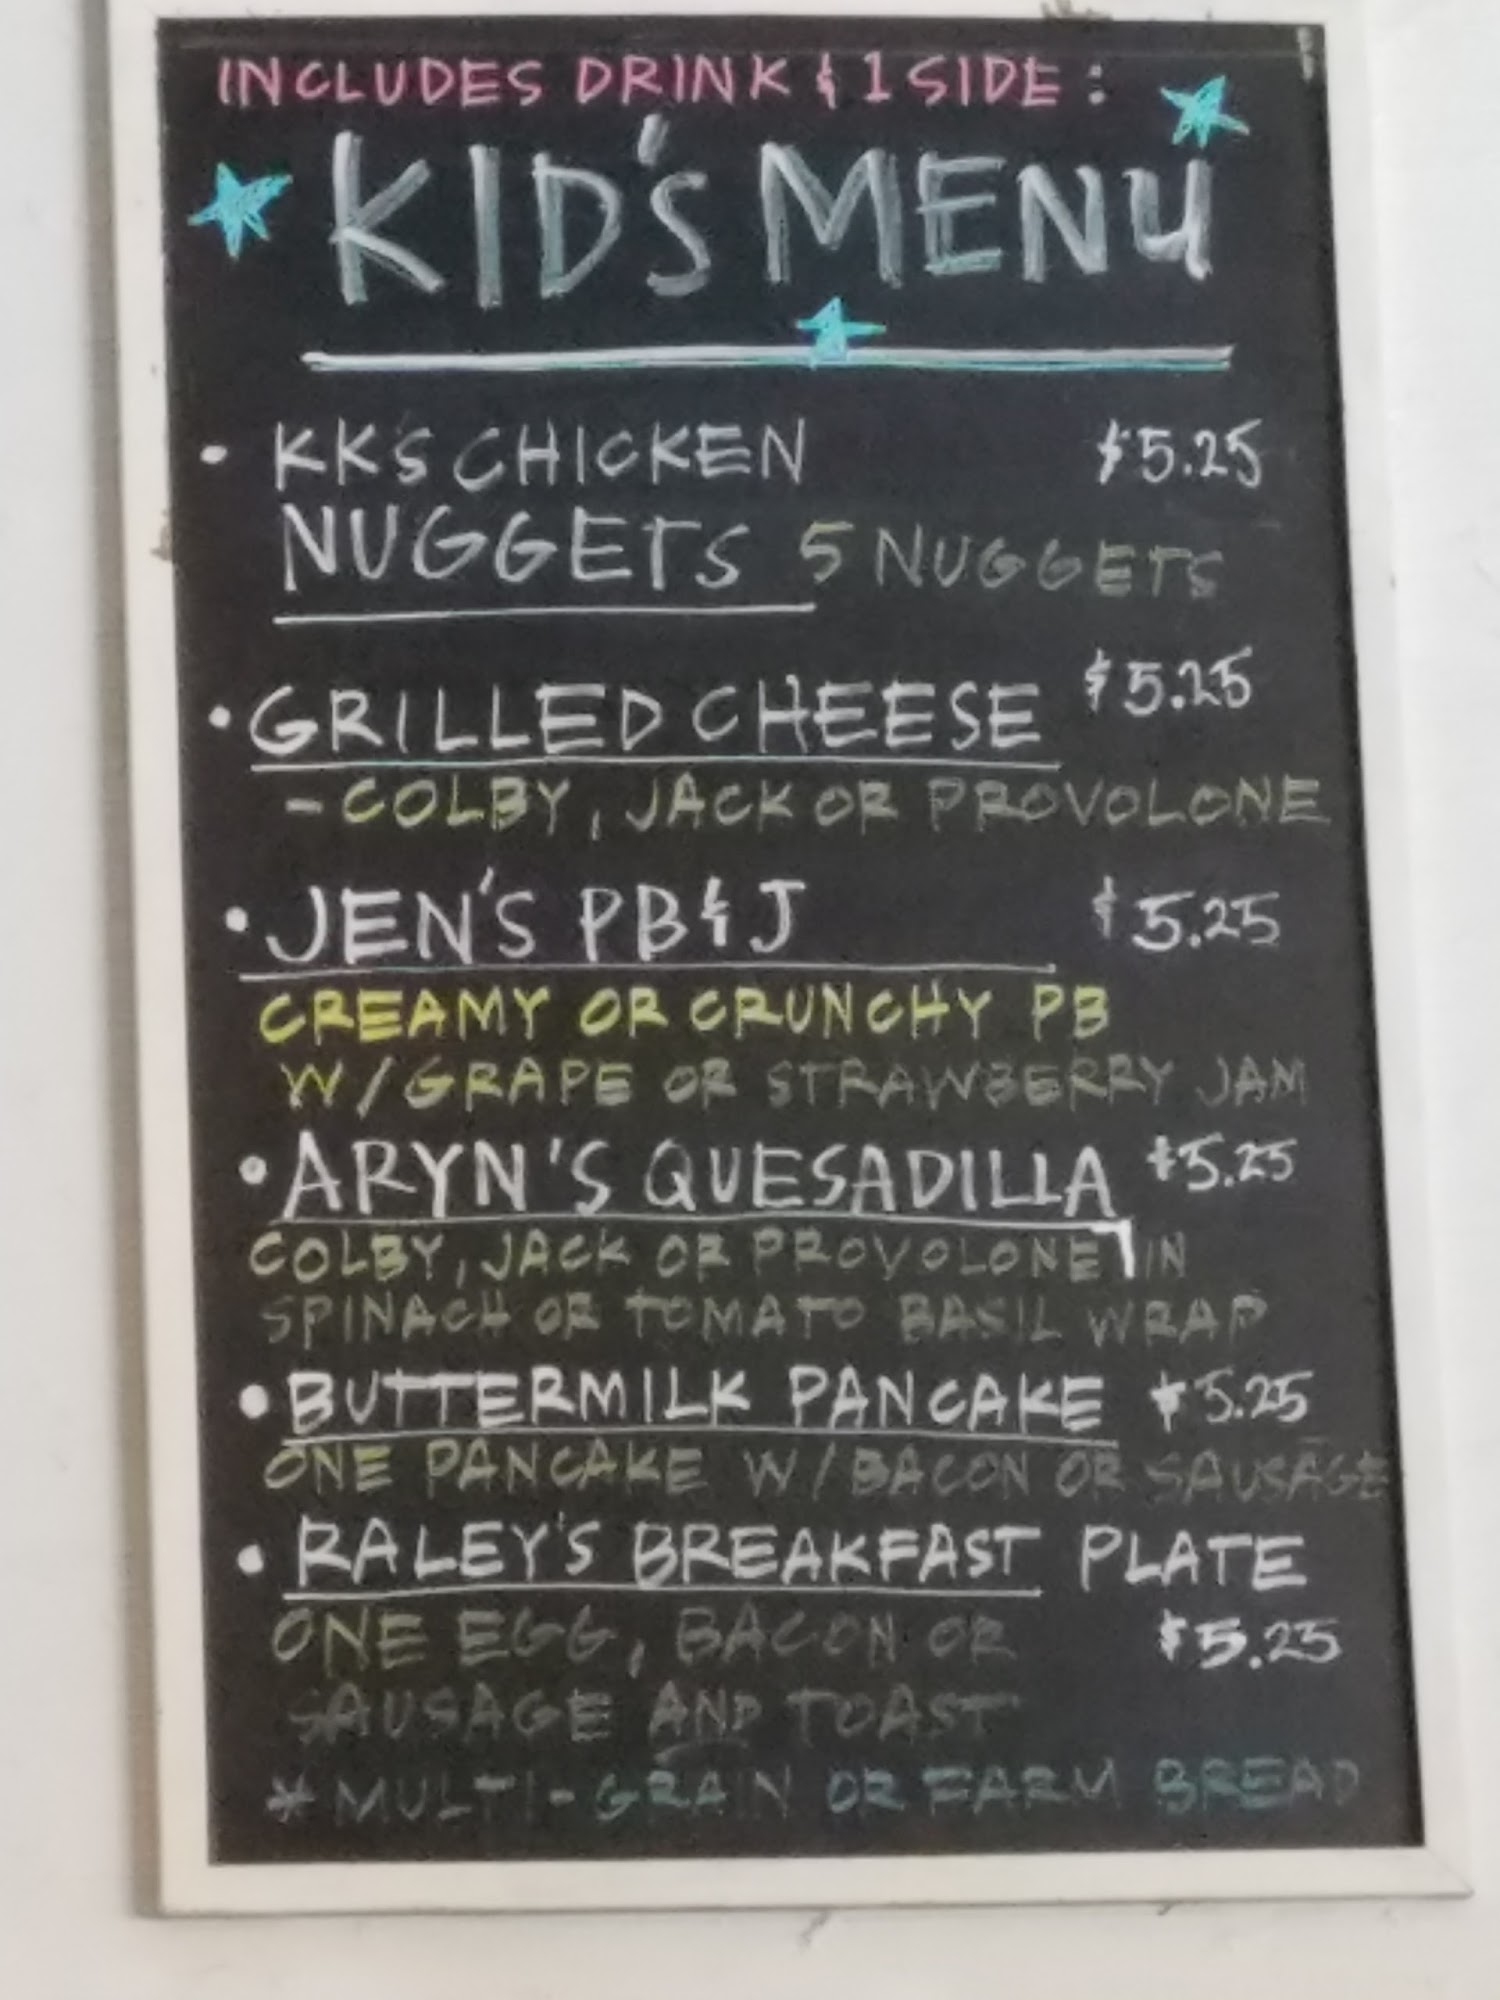 INCLUDES DRINK & 1 SIDE :
KID'S MENU
• KK'S CHICKEN $5.25
NUGGETS 5 NUGGETS
• GRILLED CHEESE $5.25
- COLBY, JACK OR PROVOLONE
• JEN'S PB&J $5.25
CREAMY OR CRUNCHY PB
W/GRAPE OR STRAWBERRY JAM
• ARYN'S QUESADILLA $5.25
COLBY, JACK OR PROVOLONE IN
SPINACH OR TOMATO BASIL WRAP
• BUTTERMILK PANCAKE $5.25
ONE PANCAKE W/BACON OR SAUSAGE
• RALEY'S BREAKFAST PLATE
ONE EGG, BACON OR $5.25
SAUSAGE AND TOAST
* MULTI-GRAIN OR FARM BREAD